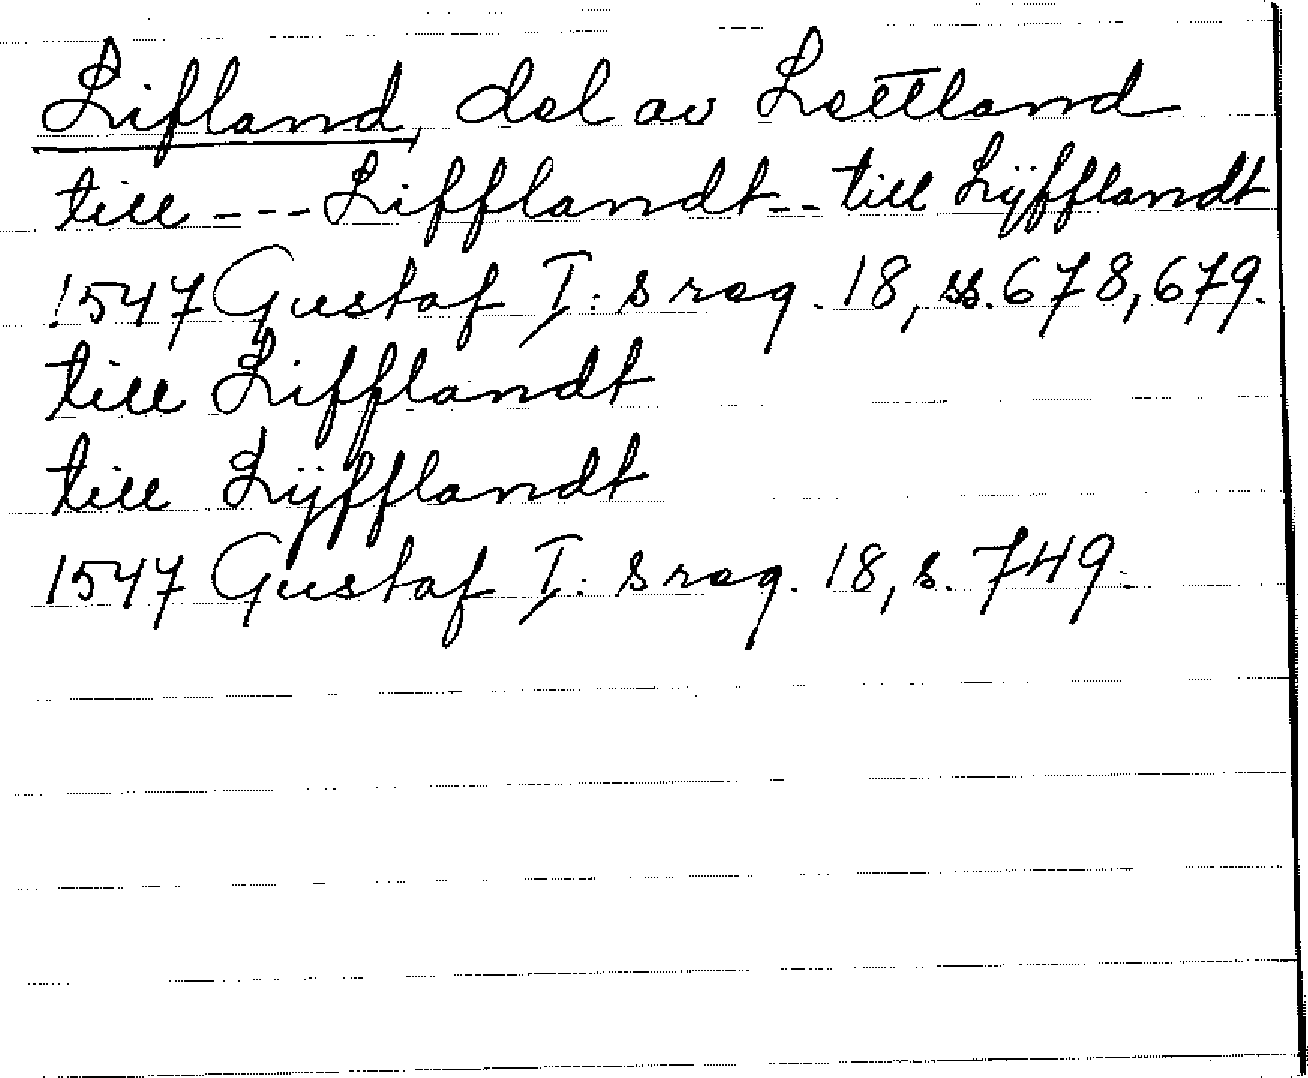 Lifland, del av Lettland
till --- Lifflandt -- till Lÿfflandt
1547 Gustaf I: s reg. 18, ss. 678, 679.
till Lifflandt
till Lÿfflandt
1547 Gustaf I: s reg. 18, s. 749.